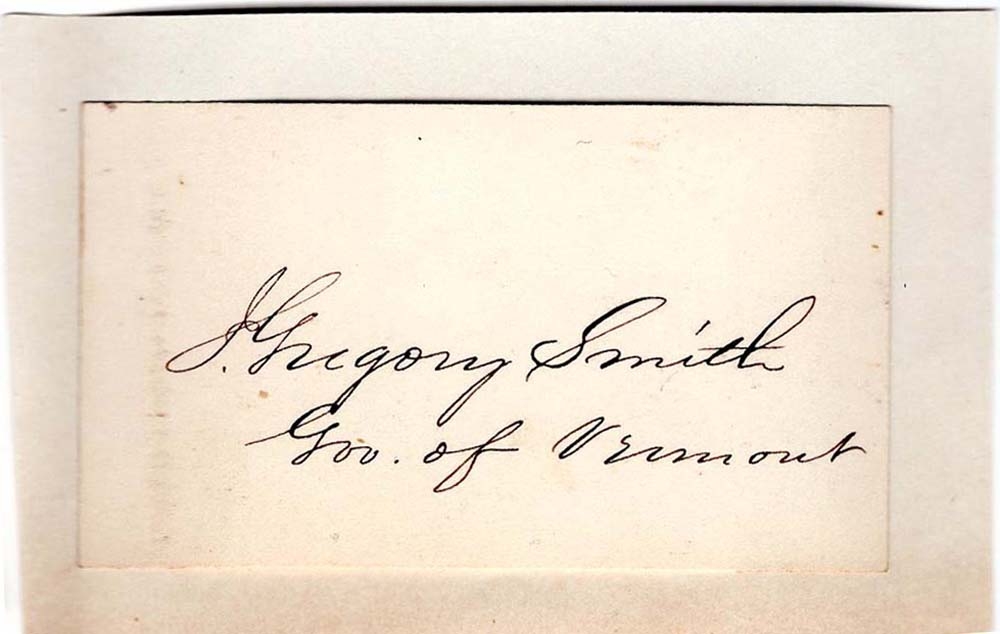 J. Gregory Smith
Gov. of Vermont